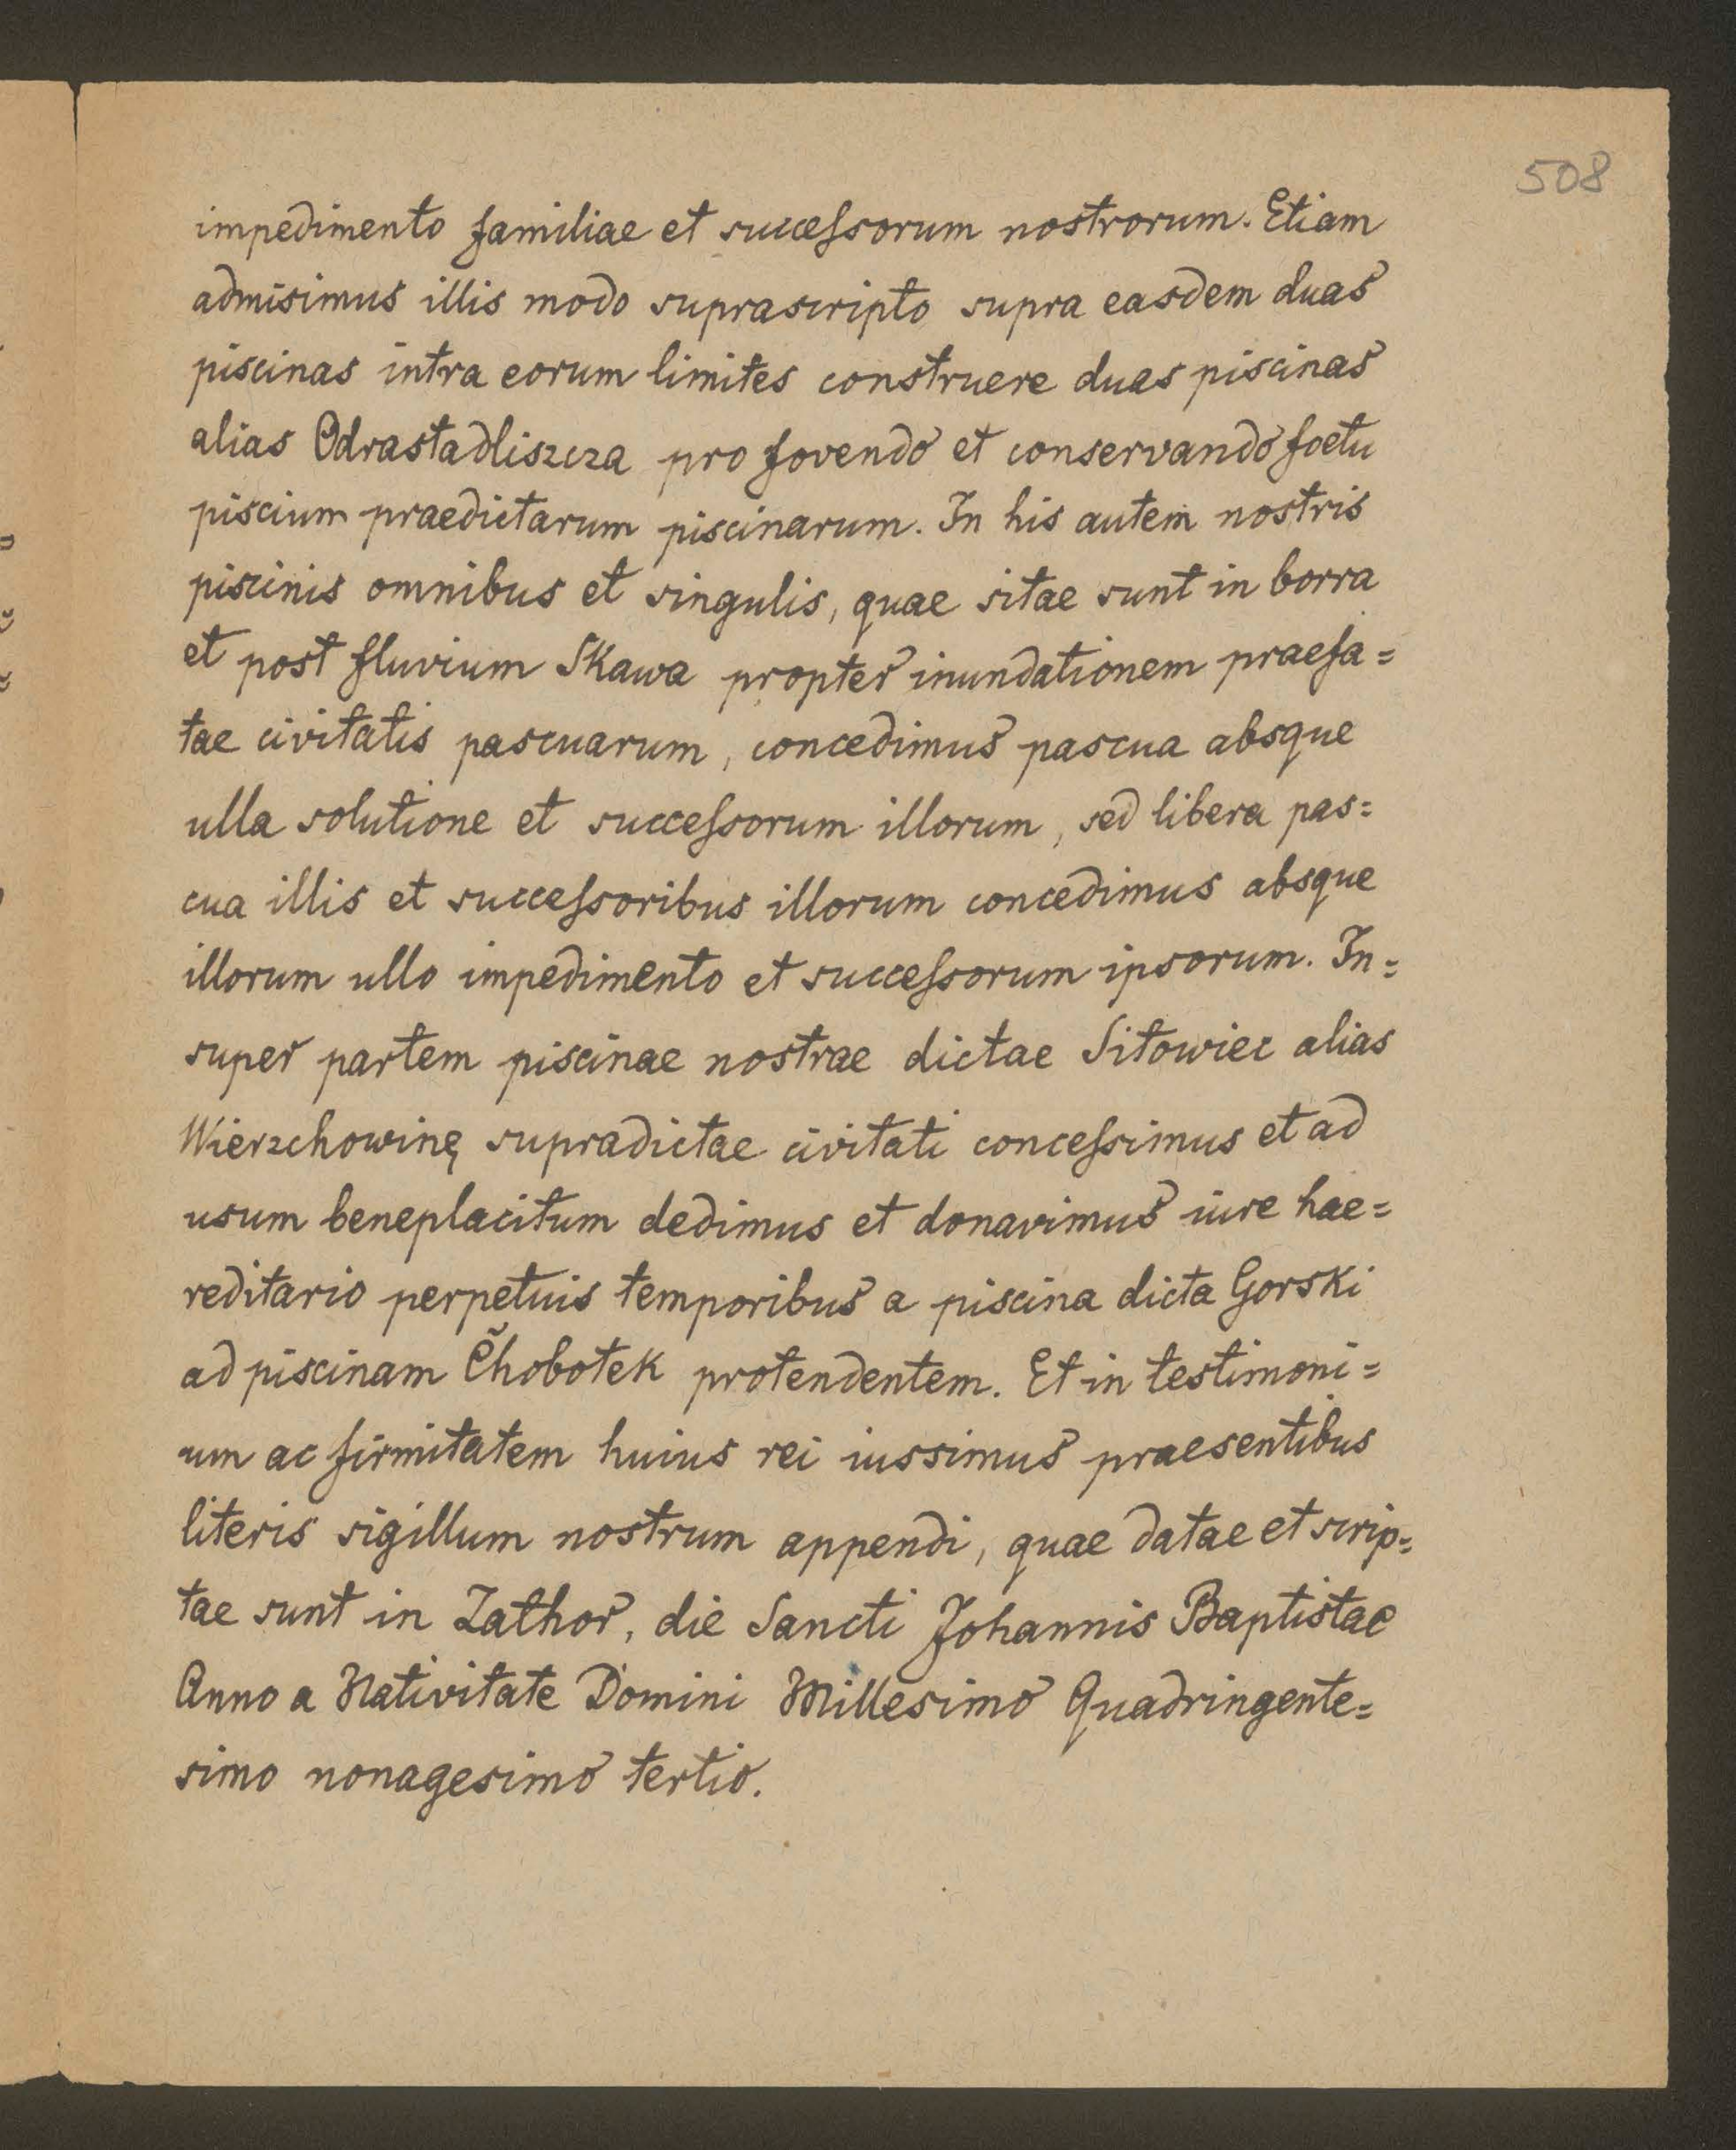 508
impedimento familiae et succeſsorum nostrorum. Etiam
admisimus illis modo suprascripto supra easdem duas
piscinas intra eorum limites construere duas piscinas
alias Odrastadliszcza pro fovendo et conservando foetu
piscium praedictarum piscinarum. In his autem nostris
piscinis omnibus et singulis, quae sitae sunt in borra
et post fluvium Skawa propter inundationem praefa=
tae civitatis pascuarum, concedimus pascua absque
ulla solutione et succeſsorum illorum, sed libera pas=
cua illis et succeſsoribus illorum concedimus absque
illorum ullo impedimento et succeſsorum ipsorum. In=
super partem piscinae nostrae dictae Sitowiec alias
Wierzchowinę supradictae civitati conceſsimus et ad
usum beneplacitum dedimus et donavimus iure hae=
reditario perpetuis temporibus a piscina dicta Gorski
ad piscinam C̃hobotek protendentem. Et in testimoni=
um ac firmitatem huius rei iussimus praesentibus
literis sigillum nostrum appendi, quae datae et scrip=
tae sunt in Zathor, die Sancti Johannis Baptistae
Anno a Nativitate Domini Millesimo Quadringente=
simo nonagesimo tertio.